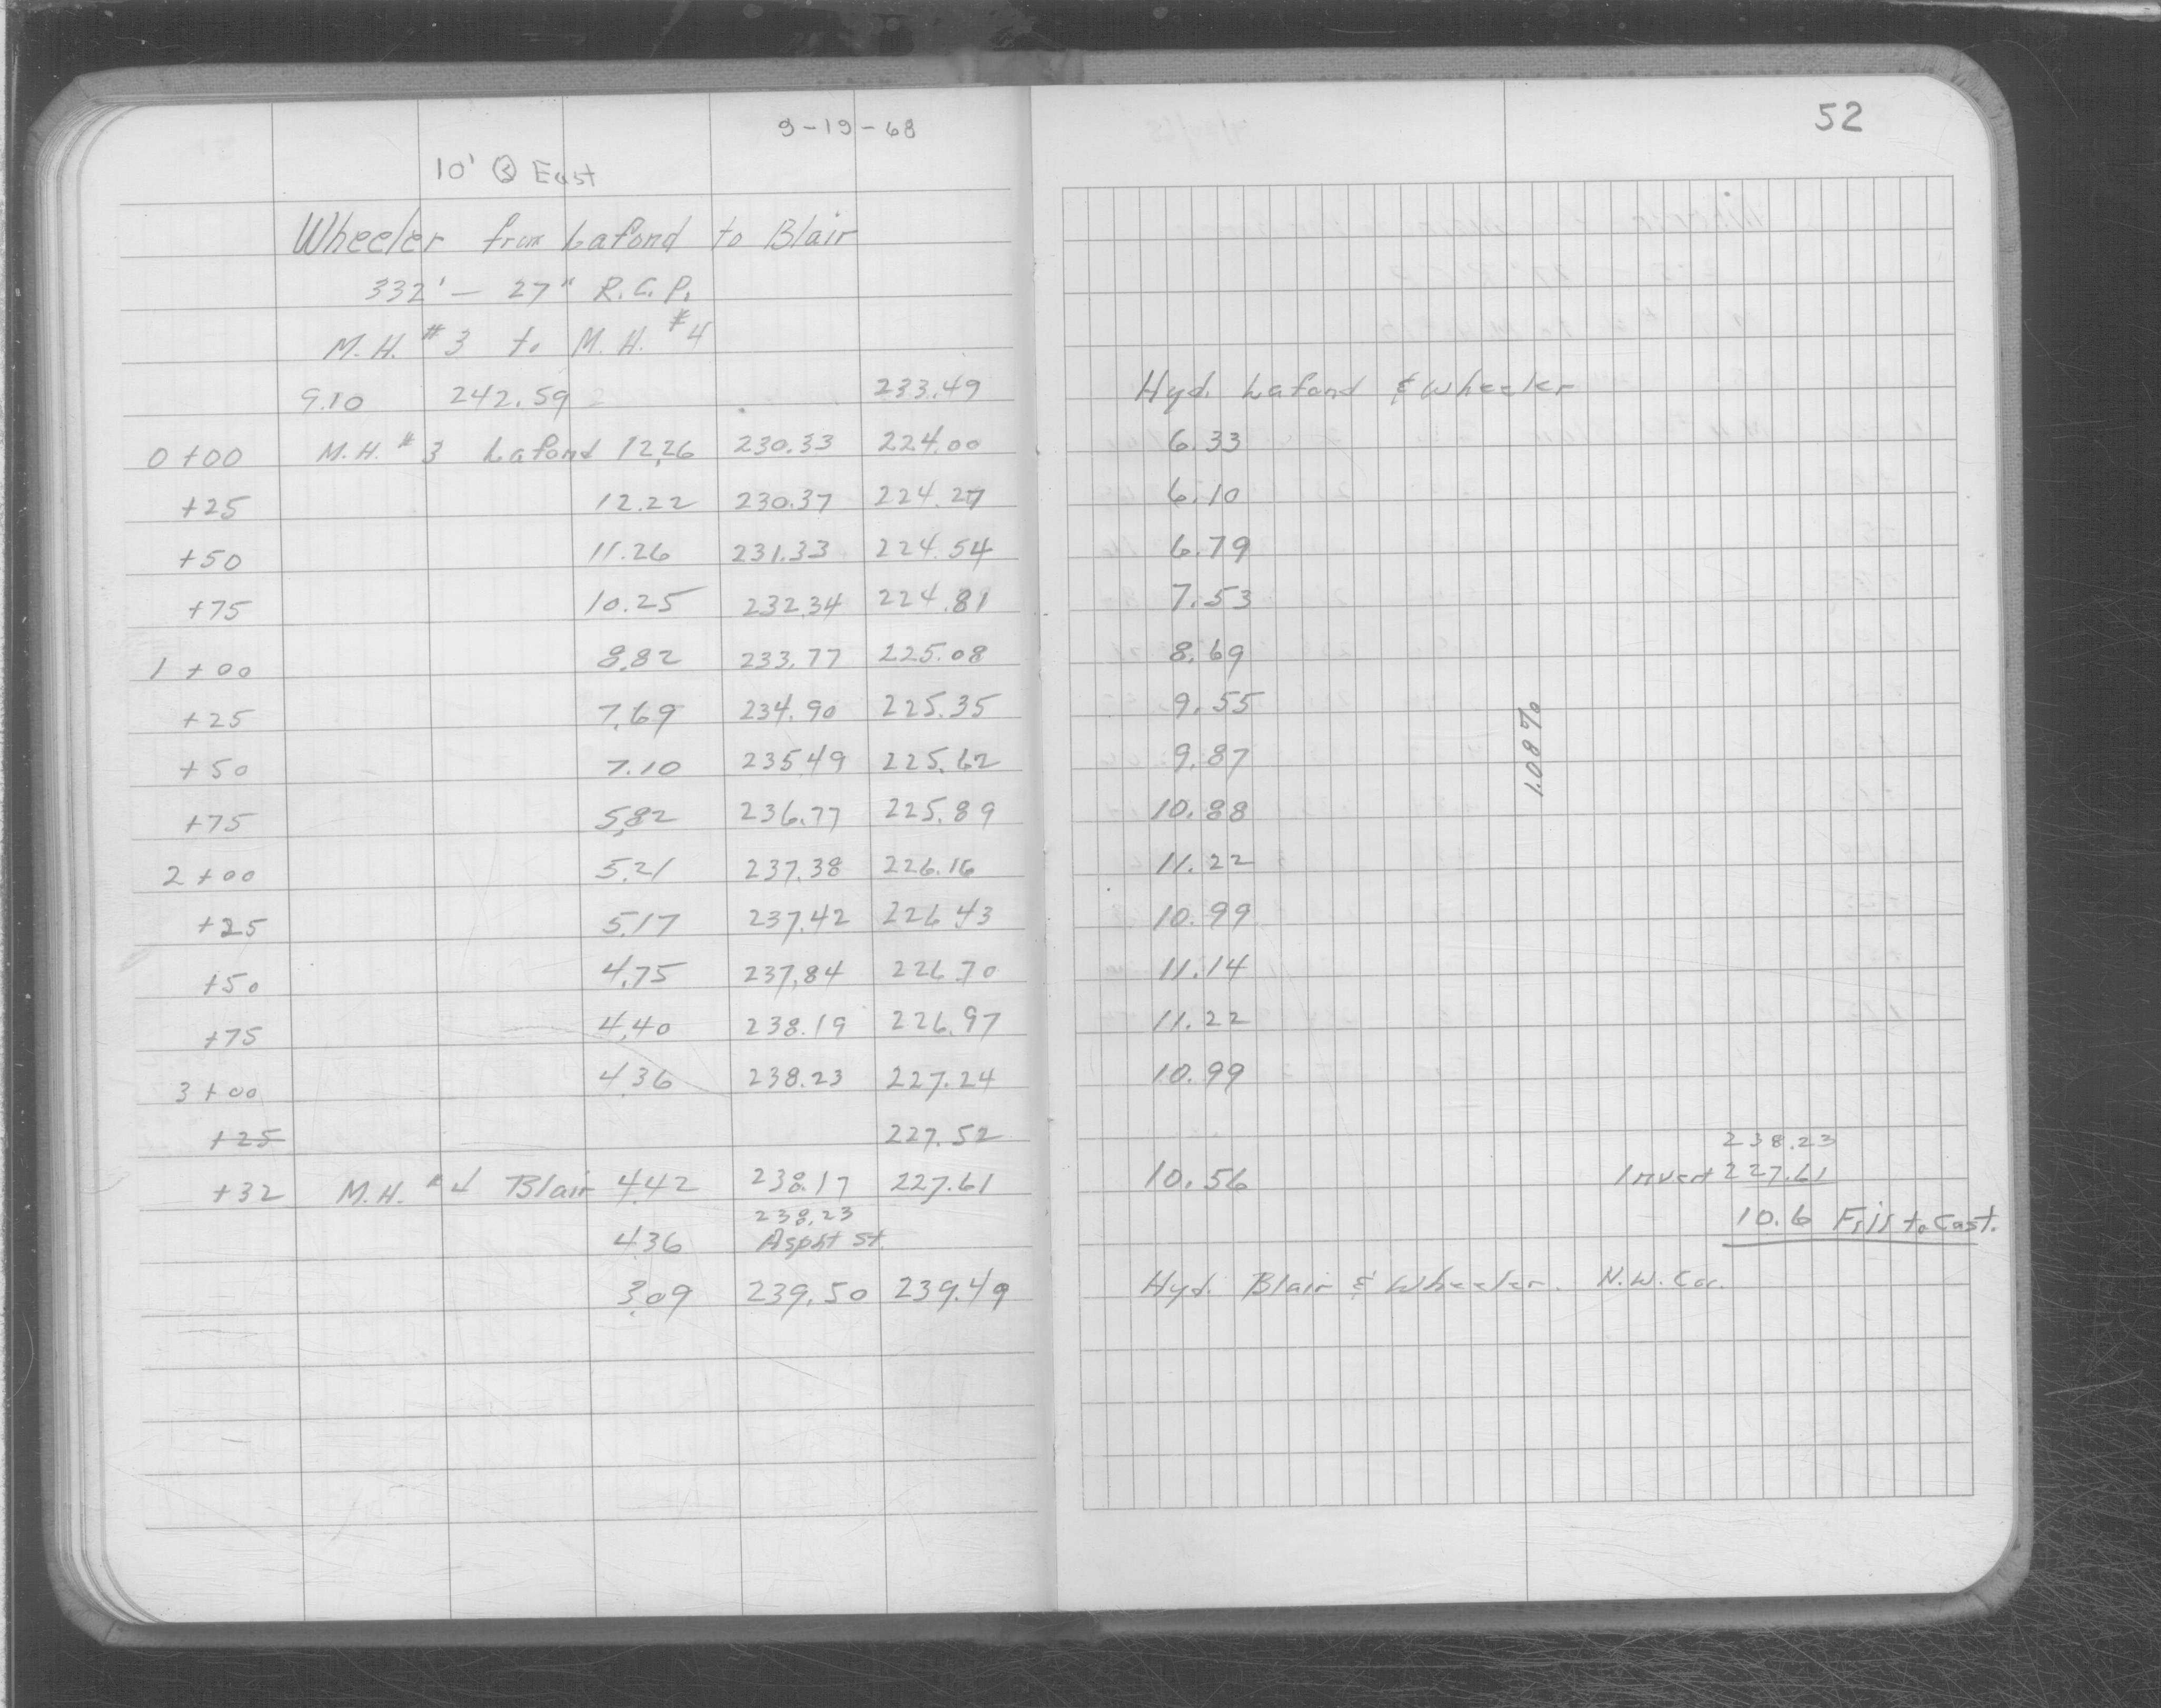 9-19-68
10' Ⓢ East
Wheeler from Lafond to Blair
332' — 27" R.C.P.
M.H. #3 to M.H. #4
9.10 242.59 233.49
0+00 M.H. #3 Lafond 12.26 230.33 224.00
+25 12.22 230.37 224.27
+50 11.26 231.33 224.54
+75 10.25 232.34 224.81
1+00 8.82 233.77 225.08
+25 7.69 234.90 225.35
+50 7.10 235.49 225.62
+75 5.82 236.77 225.89
2+00 5.21 237.38 226.16
+25 5.17 237.42 226.43
+50 4.75 237.84 226.70
+75 4.40 238.19 226.97
3+00 4.36 238.23 227.24
+25 227.52
+32 M.H. #4 Blair 4.42 238.17 227.61
238.23
4.36 Aspht St.
3.09 239.50 239.49
52
Hyd. Lafond & Wheeler
6.33
6.10
6.79
7.53
8.69
9.55
1.08%
9.87
10.88
11.22
10.99
11.14
11.22
10.99
238.23
10.56 Invert 227.61
10.6 Fill to Cast.
Hyd. Blair & Wheeler. N.W. Cor.